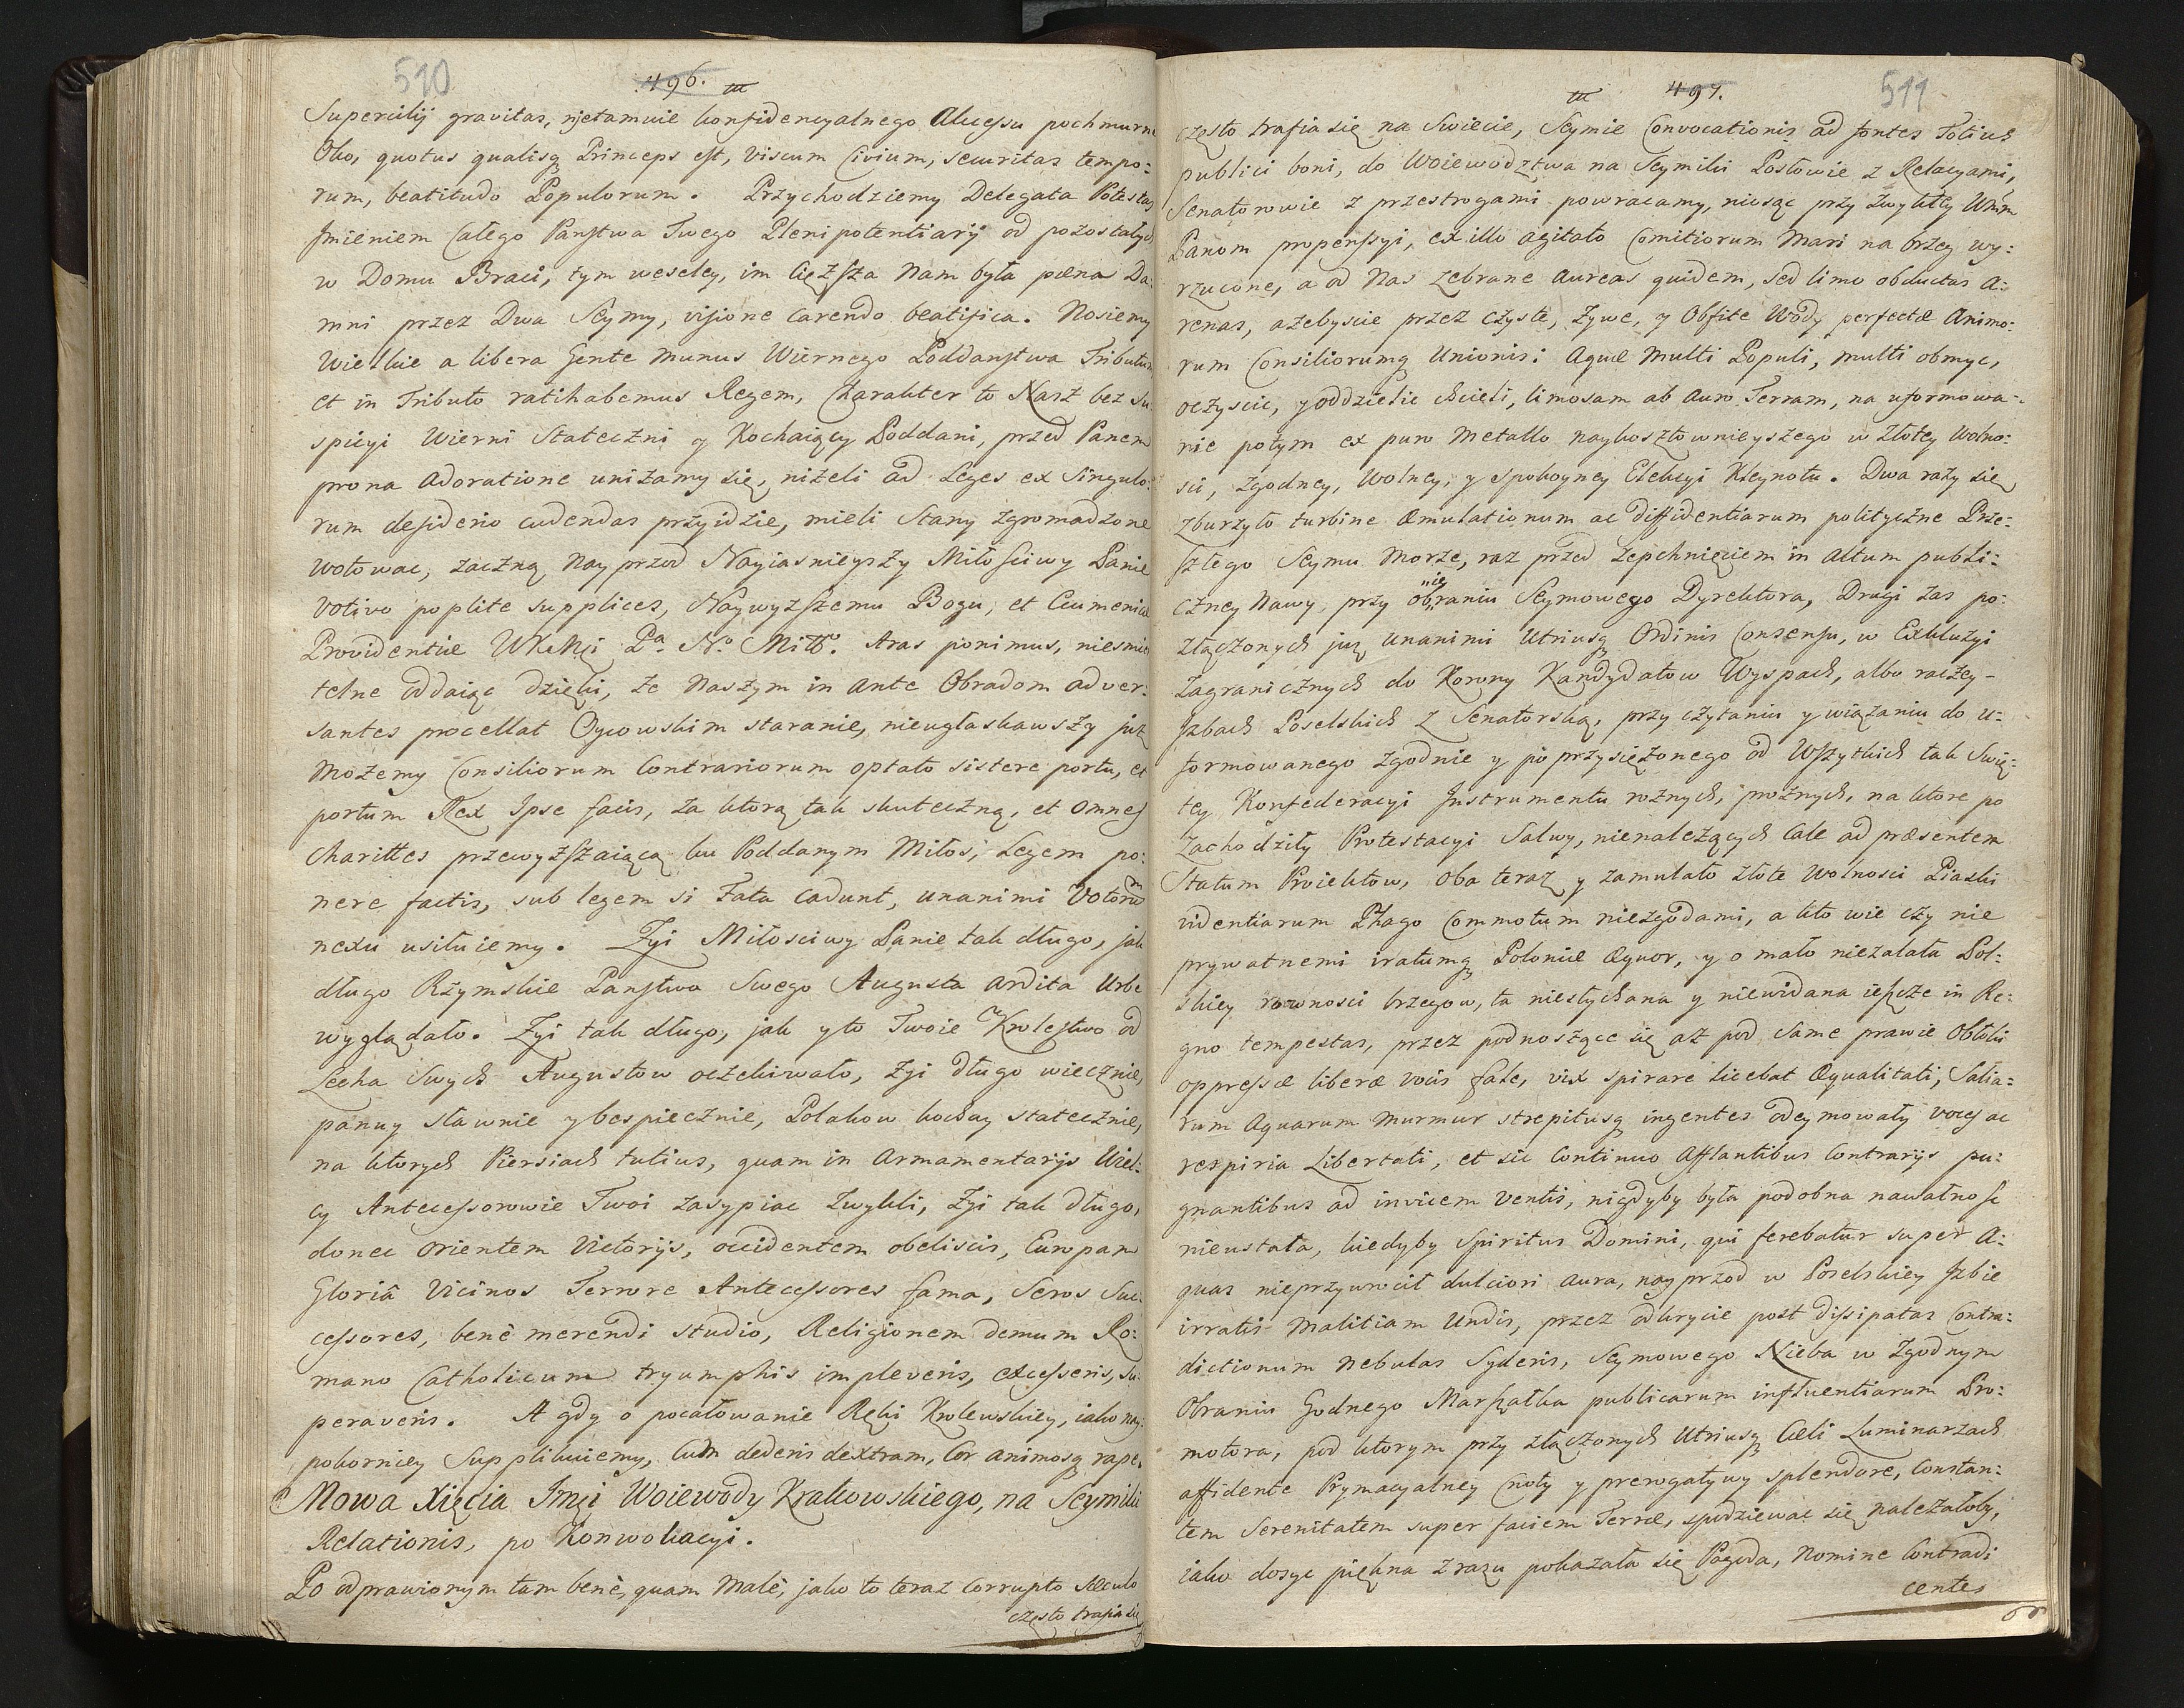 510
496.
Supercilij gravitas, nietamuie konfidencyalnego Akcessu pochmurne
Oko, quotus qualisq Princeps est, viscum Civium, securitas tempo:
rum, beatitudo Populorum. Przychodziemy Delegata Potestas
Jmieniem Całego Panstwa Twego Plenipotentiarij od pozostałych
w Domu Braci, tym weseley, im cięższa Nam była pœna Da:
mni przez Dwa Seymy, visione carendo beatifica. Nosiemy
Wielkie a libera Gente munus Wiernego Poddanstwa Tributum
et in Tributo ratihabemus Regem, Charakter to Nasz bez su:
spicyi Wierni Stateczni y Kochaiący Poddani, przed Panem
prona adoratione unizamy się, nizeli ad Leges ex Singulo:
rum desiderio cudendas przyidzie, mieli Stany zgromadzone
wotowac, zaczną nayprzod Nayiasnieyszy Miłosciwy Panie
votivo poplite supplices, Naywyzszemu Bogu, et Œcumenicæ
Providentiæ WKMci Pa. No. Mitto. Aras ponimus, niesmier
telne oddaiąc dzięki, ze naszym in ante Obradom adver:
santes procellat Oycowskim staranie, nieugłaskawszy już
mozemy Consiliorum Contrariorum optato sistere portu, et
portum Rex Ipse facis, za ktorą tak skuteczną, et omnes
Charittes przewyzszaiącą ku Poddanym Miłos; Legem po:
nere factis, sub legem si Fata cadunt, unanimi Votorum
nexu usiłuiemy. Zyi Miłosciwy Panie tak długo, jak
długo Rzymskie Panstwo Swego Augusta ardita Urbe
wyglądało. Zyi tak długo, jak y to Twoie Krolestwo od
Lecha Swych Augustow oczekiwało, zyi długo wiecznie,
panuy sławnie y bespiecznie, Polakow kochay statecznie,
na ktorych Piersiach tutius, quam in Armamentarijs Wiel:
cy Antecessorowie Twoi zasypiac zwykli, zyi tak długo,
donec Orientem Victorijs, occidentem obeliscis, Europam
Gloriâ Vicinos Terrore Antecessores fama, Seros Suc:
cessores, benè merendi studio, Religionem demum Ro:
mano Catholicum tryumphis impleveris, excesseris, su:
peraveris. A gdy o pocałowanie Ręki Krolewskiey, iako nay
pokorniey Supplikuiemy, Cum dederis dextram, Cor animosq rape.
Mowa Xięcia Jmci Woiewody Krakowskiego, na Seymiku
Relationis, po Konwokacyi.
Po odprawionym tam benè, quam Malè, jako to teraz Corrupto sæculo
często trafia się
497.
511
często trafia się na Swiecie, Seymie Convocationis ad fontes Totius
publici boni, do Woiewodztwa na Seymiki Posłowie z Relacyami,
Senatorowie z przestrogami powracamy, niosąc przy zwykłey Wmm
Panom propensyi, ex illo agitato Comitiorum Mari na brzeg wy:
rzucone, a od Nas zebrane Aureas quidem, sed limo obductas A:
renas, azebyscie przez czyste, zywe, y Obfite Wody perfectæ Animo:
rum Consiliorumq Unionis: Aquæ Multi Populi, multi obmyc,
oczyscic, y oddzielic chcieli, limosam ab Auro Terram, na uformowa-
nie potym ex puro Metallo naykosztownieyszego w złotey Wolno:
sci, zgodney, Wolney, y spokoyney Elekcyi Kleynotu. Dwa razy się
zburzyło turbine æmulationum ac diffidentiarum polityczne Prze:
szłego Seymu Morze, raz przed zepchnięciem in Altum publi:
czney Nawy, przy obieraniu Seymowego Dyrektora, Drugi zas po:
złączonych juz Unanimi Utriusq Ordinis Consensu, w Exkluzyi
Zagranicznych do Korony Kandydatow Wyspach, albo raczey -
Jzbach Poselskich z Senatorską, przy czytaniu y wiązaniu do u:
formowanego zgodnie y poprzysięzonego od Wszytkich tak Swię:
tey Konfederacyi Jnstrumentu roznych, proznych, na ktore po
zachodziły Protestacyi Salwy, nienalezących Cale ad præsentem
Statum Proiektow, Oba teraz y zamulało złote Wolnosci Piaski
videntiarum Phago Commotum niezgodami, a kto wie czy nie
prywatnemi iratumq Poloniæ Æquor, y o mało niezalała Pol:
skiey rownosci brzegow, ta niesłychana y niewidana ieszcze in Re:
gno tempestas, przez podnoszące się az pod same prawie Obłoki
oppressæ liberæ vocis fale, vix spirare licebat Æqualitati, Salia:
rum Aquarum Murmur strepitusq ingentes odeymowały voces ac
respiria Libertati, et sic Continuo Afflantibus Contrarijs pu:
gnantibus ad invicem Ventis, nigdyby była podobna nawałnosc
nieustała, kiedyby Spiritus Domini, qui ferebatur super A:
quas nieprzywrocił dulciori Aura, nayprzod w Poselskiey Jzbie
irratis Malitiam Undis, przez odkrycie post dissipatas Contra:
dictionum Nebulas Syderis, Seymowego Nieba w zgodnym
Obraniu Godnego Marszałka publicarum influentiarum Pro:
motora, pod ktorym przy złączonych Utriusq Cœli Luminarzach
affidente Prymacyalney Cnoty y prerogatywy splendore, Constan:
tem Serenitatem super faciem Terræ, spodziewac się nalezałoby,
iako dosyc piękna zrazu pokazała się Pogoda, Nomine Contradi
centes